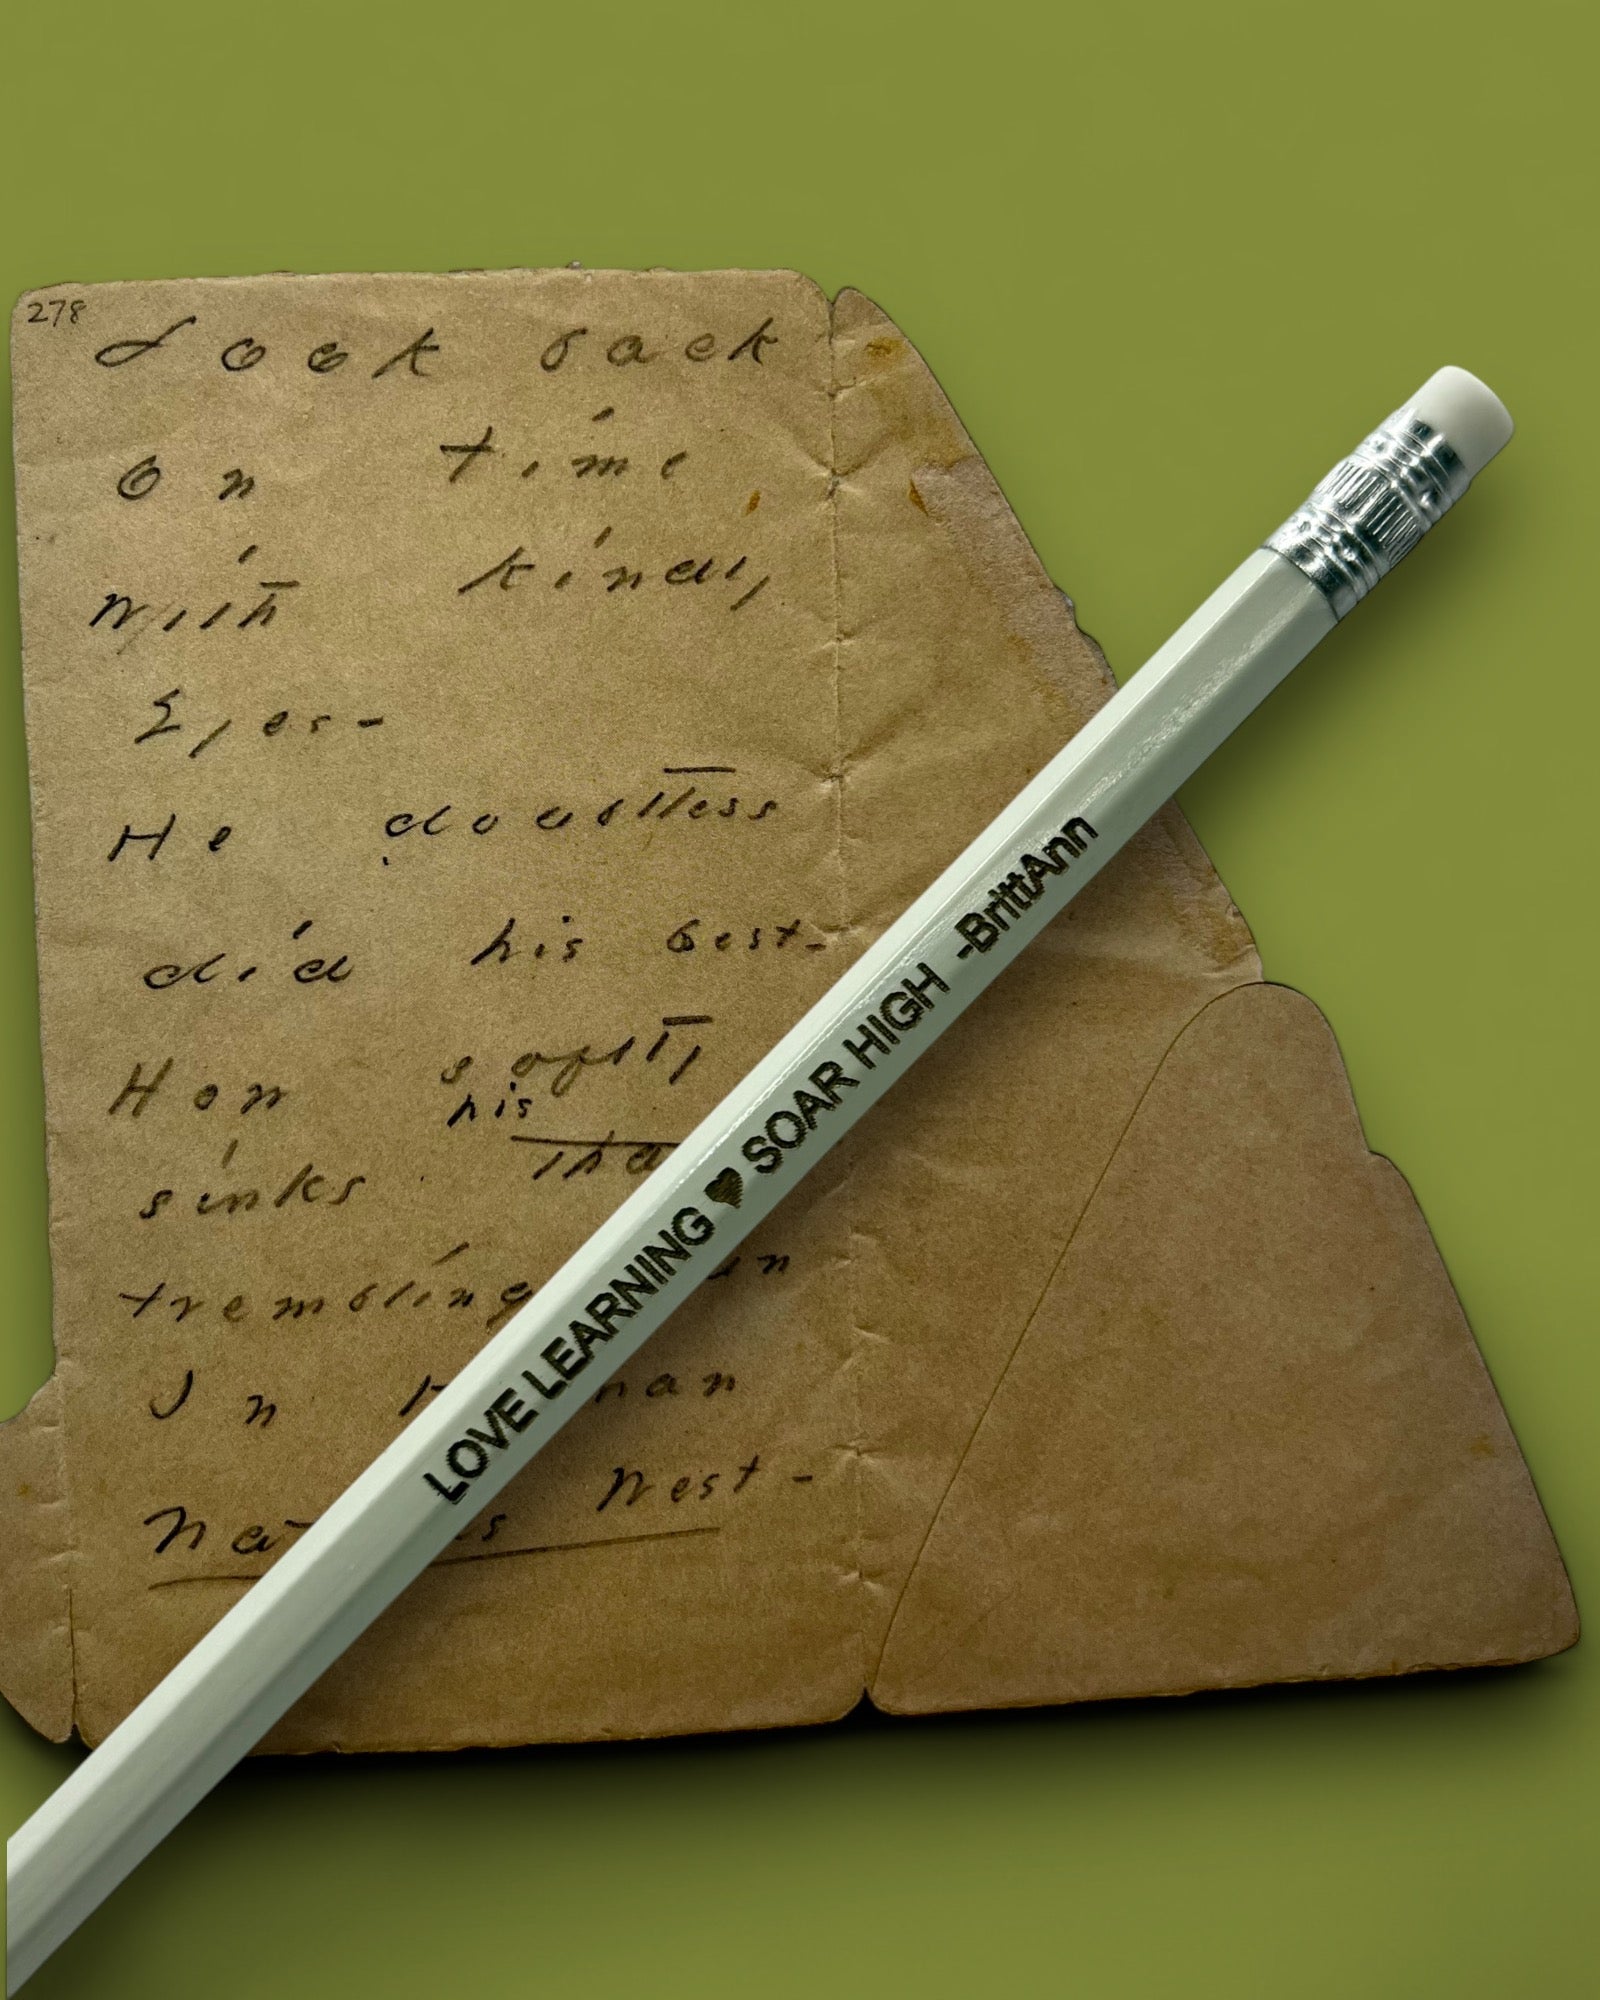 278
Look back
On time
with kindly
Eyes -
He doubtless
did his best -
How softly
his
sinks
trembling
In
West -
LOVE LEARNING ♥ SOAR HIGH -BrittAnn